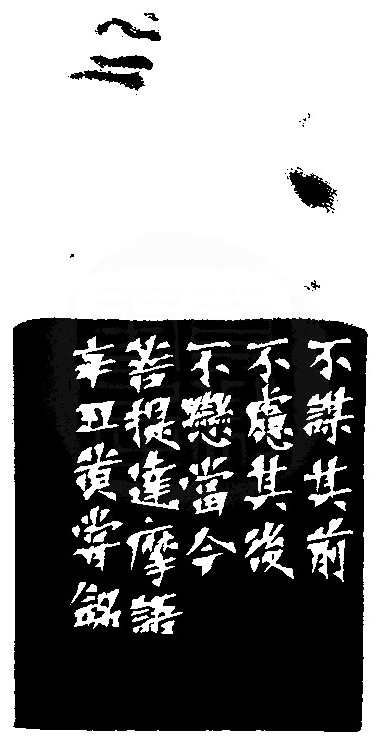 不謀其前
不慮其後
不戀當今
菩提達摩語
辛丑黃嘗銘